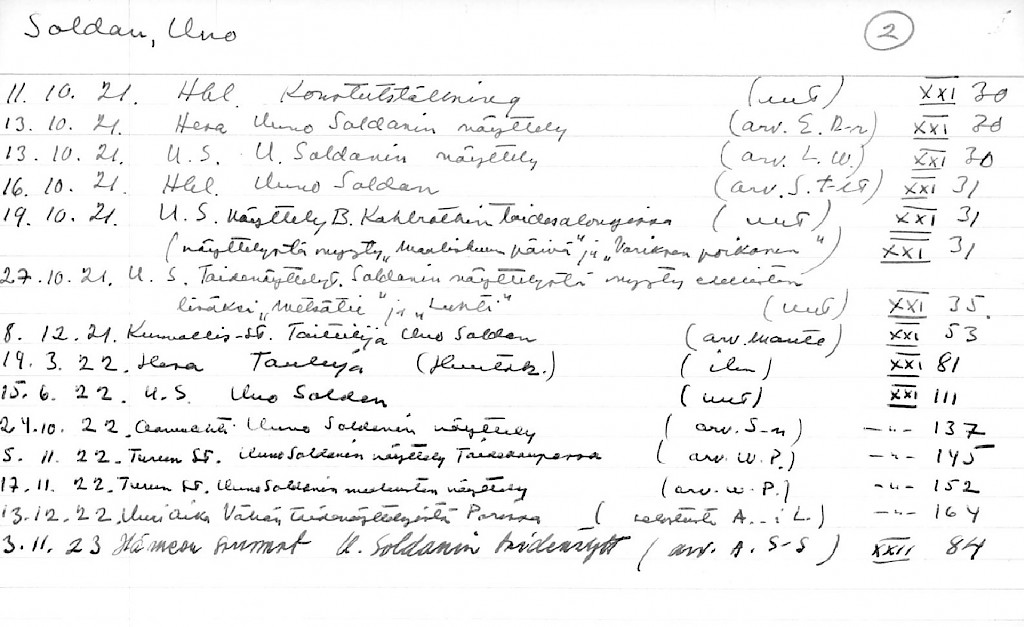 Soldan, Uno 2
11. 10. 21. Hbl. Konstutställning (uut) XXI 30
13. 10. 21. Hesa Uuno Soldanin näyttely (arv. E. R-r) XXI 30
13. 10. 21. U.S. U. Soldanin näyttely (arv. L. W.) XXI 30
16. 10. 21. Hbl. Uuno Soldan (arv. S. t-st) XXI 31
19. 10. 21. U.S. Näyttely B. Kahlrothin taidesalongissa (uut) XXI 31
(näyttelystä myyty „Maaliskuun päivä" ja „Variksen poikanen") XXI 31
27. 10. 21. U. S. Taidenäyttelyt. Soldanin näyttelystä myyty edellisten
lisäksi „Metsätie" ja „Lehti" (uut) XXI 35.
8. 12. 21. Kunnallis-st. Taiteilija Uno Soldan (arv. Mante) XXI 53
19. 3. 22. Hesa Tauluja (ilm) XXI 81
15. 6. 22. U.S. Uno Soldan (uut) XXI 111
24. 10. 22. Aamulehti Uuno Soldanin näyttely (arv. S-n) —"— 137
5. 11. 22. Turun St. Uuno Soldanin näyttely Taidekaupassa (arv. W. P.) —"— 145
17. 11. 22. Turun St. Uuno Soldanin näyttely (arv. W. P.) —"— 152
13. 12. 22. Uusi Aika Vähän taidenäyttelyistä Porissa (selostusta A. -i L.) —"— 164
3. 11. 23 Hämeen Sanomat U. Soldanin taidenäytt (arv. A. S-S) XXII 84